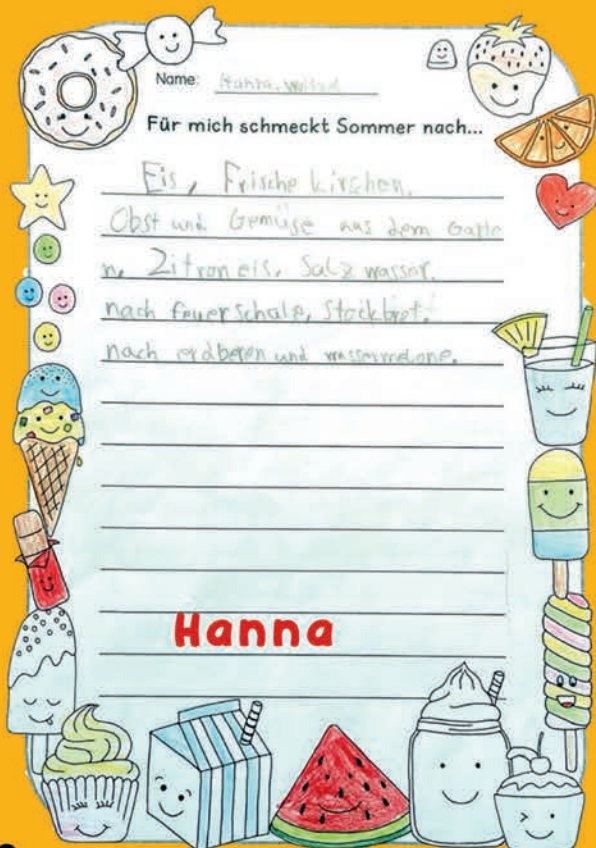 Name: Hanna
Für mich schmeckt Sommer nach...
Eis, Frische kirschen.
Obst und Gemüse aus dem Garte
n, Zitroneis, Salzwasser.
nach feuerschale, Stockbrot.
nach erdberen und wassermelone.
Hanna